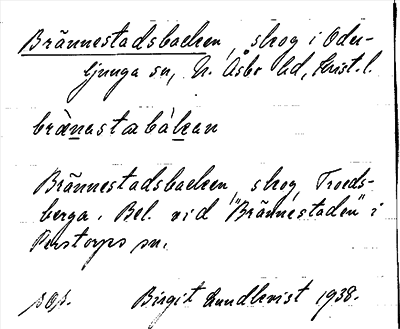 Brännestadsbacken, skog i Oder-
ljunga sn, N. Åsbo hd, Krist. l.
brä̀nastabàkan
Brännestadsbacken, skog, Troeds-
berga. Bel. vid "Brännestaden" i
Perstorps sn.
Birgit Lundkvist 1938.